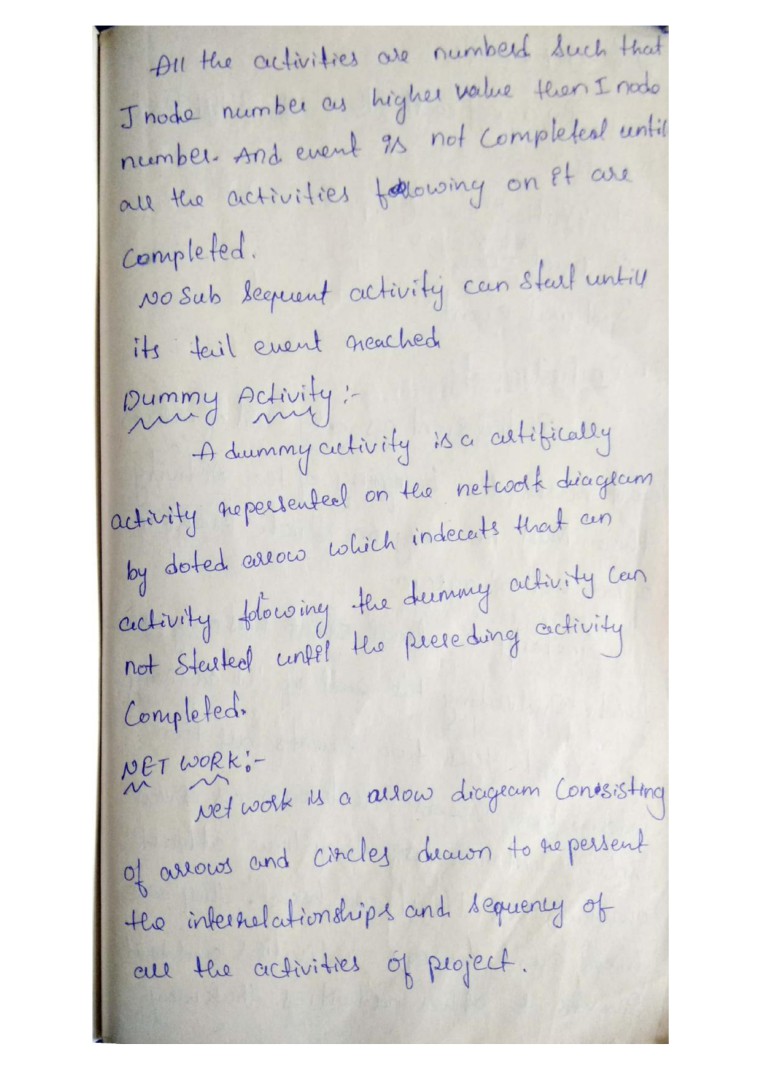 All the activities are numberd such that
J node number as higher value then I node
number. And event is not Completed until
all the activities following on it are
Completed.
NO Sub Sequent activity can Start untill
its tail event reached
Dummy Activity :-
A dummy activity is a artifically
activity repersented on the network diagram
by doted arrow which indecats that an
activity folowing the dummy activity can
not Started until the preceding activity
Completed.
NET WORK :-
Net work is a arrow diagram Consisting
of arrows and circles drawn to repersent
the interrelationships and sequency of
all the activities of project.